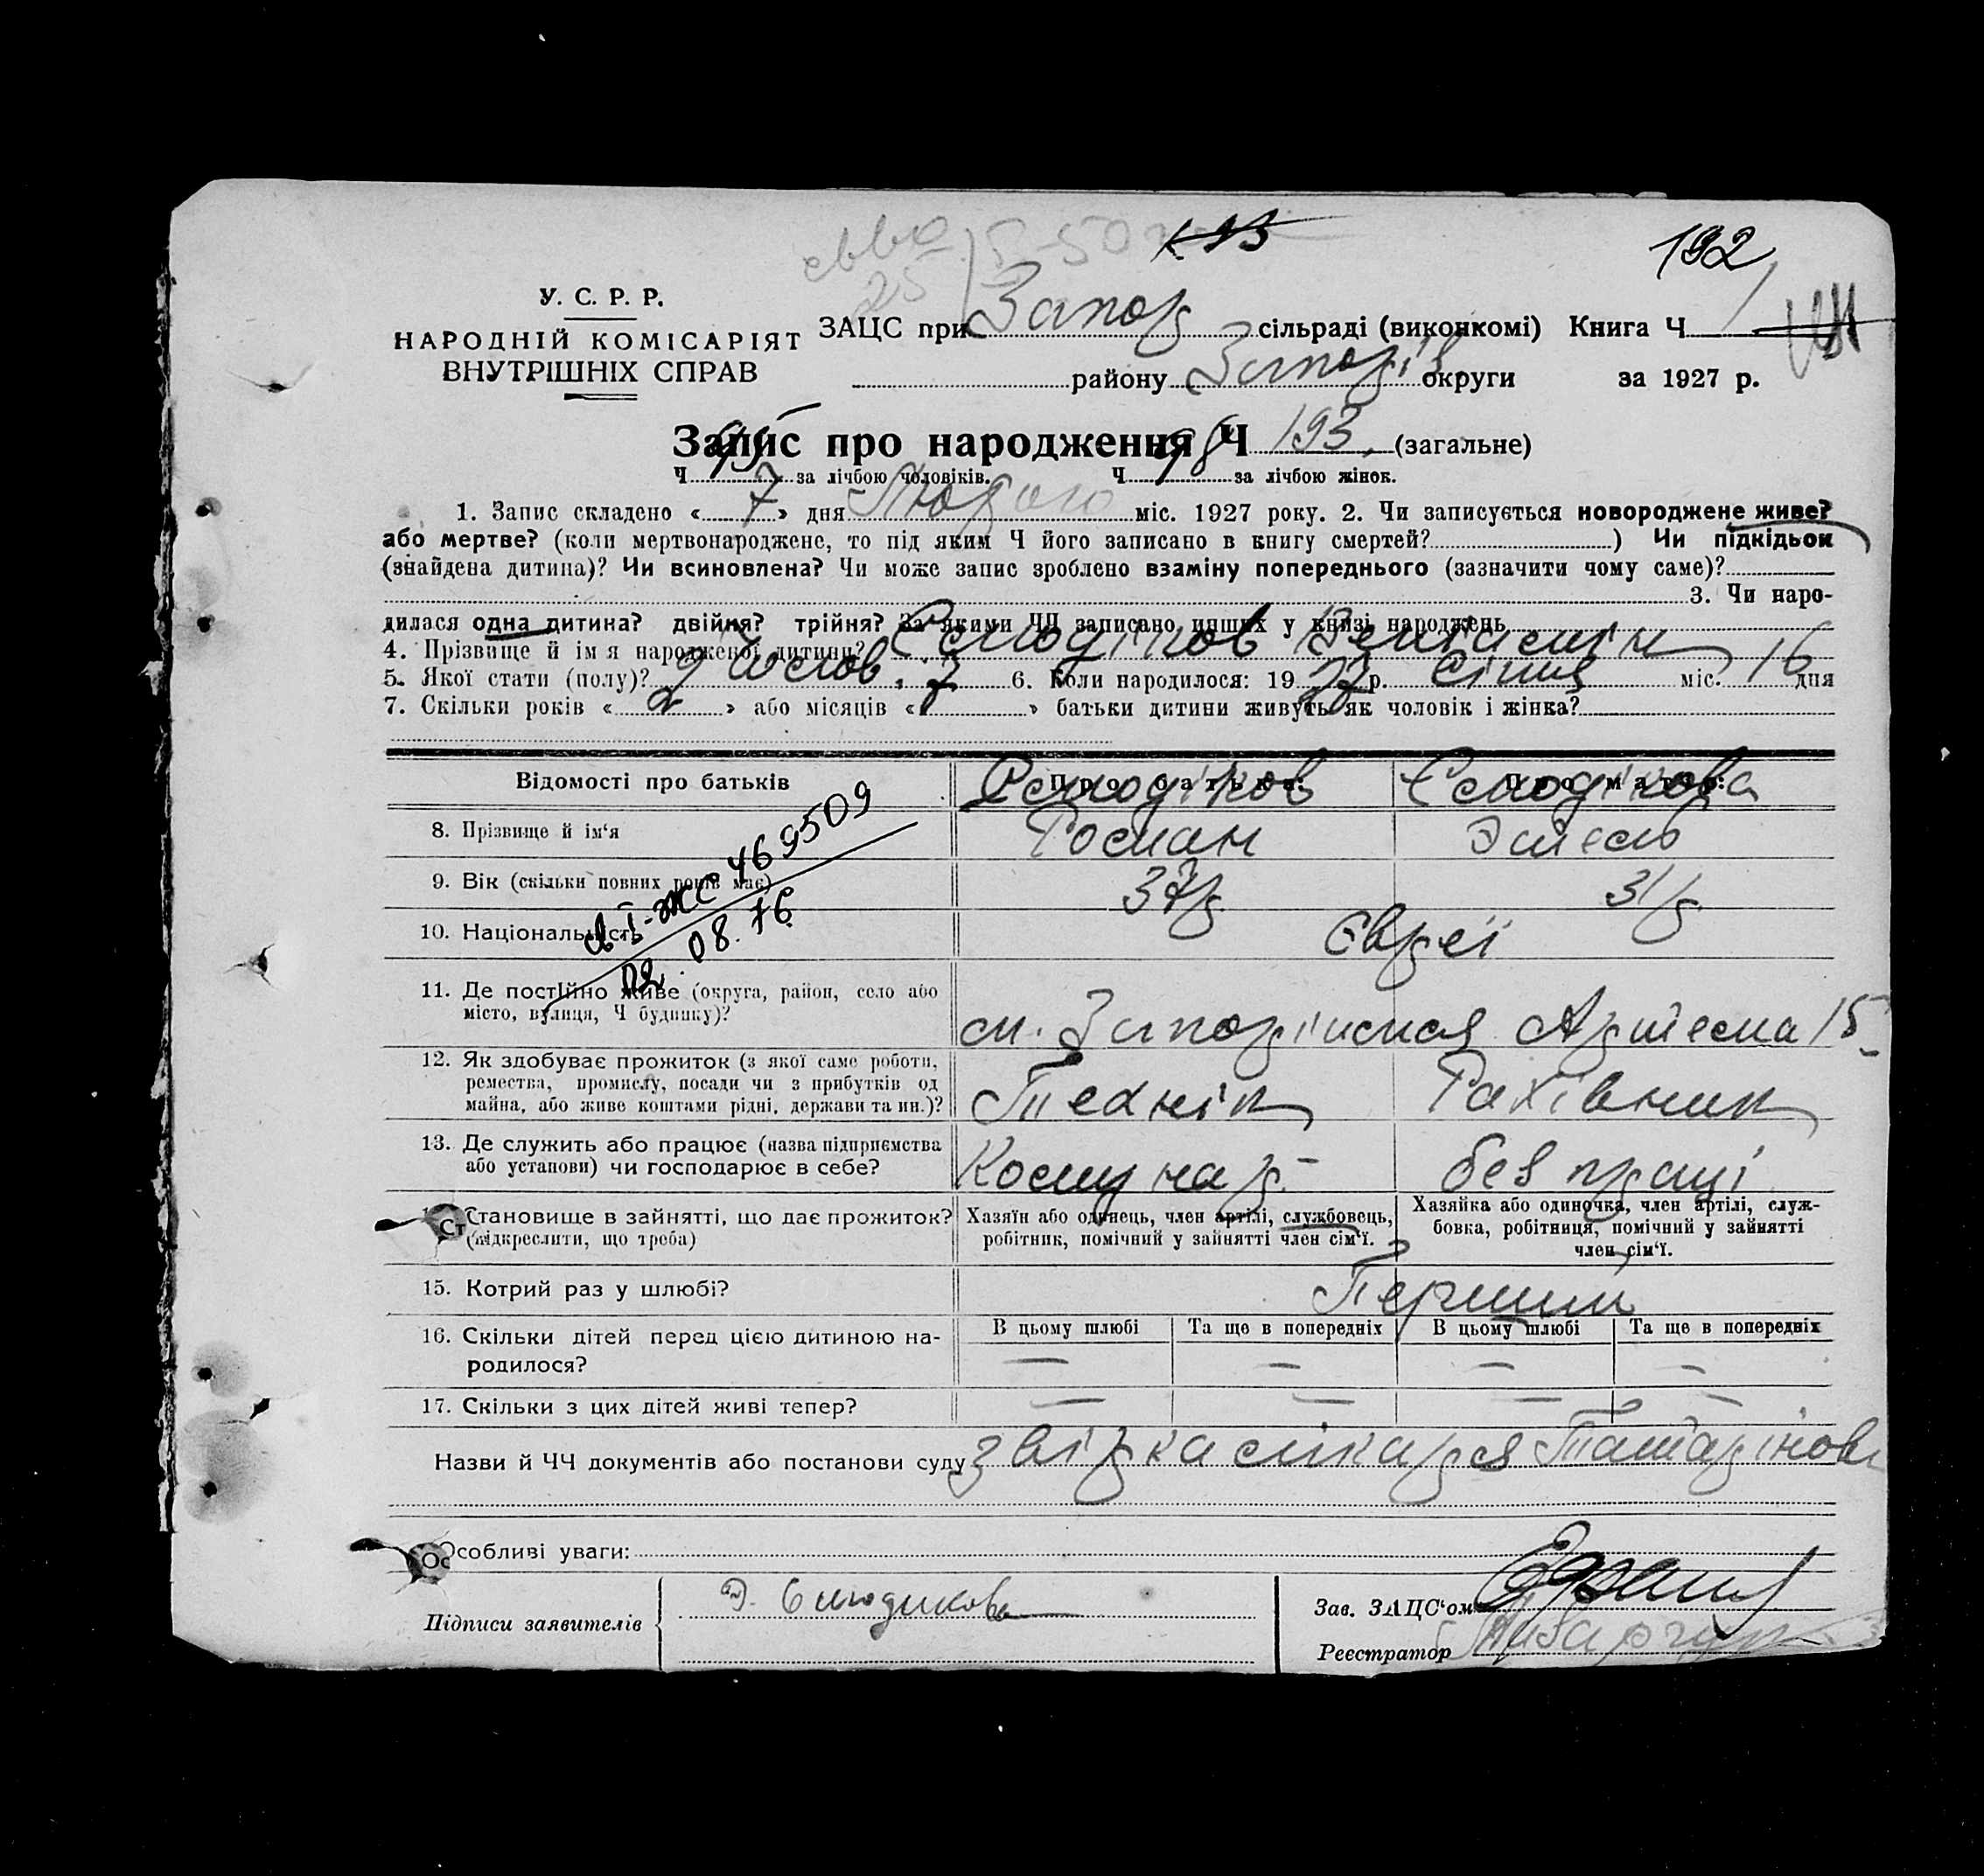 192
У. С. Р. Р.
НАРОДНІЙ КОМІСАРІЯТ
ВНУТРІШНІХ СПРАВ
ЗАЦС при Запор сільраді (виконкомі) Книга Ч
району Запоріз. округи за 1927 р.
Запис про народження Ч 193 (загальне)
Ч 95 за лічбою чоловіків. Ч 98 за лічбою жінок.
1. Запис складено « 7 » дня Лютого міс. 1927 року. 2. Чи записується новороджене живе?
або мертве? (коли мертвонароджене, то під яким Ч його записано в книгу смертей? ) Чи підкідьок
(знайдена дитина)? Чи всиновлена? Чи може запис зроблено взаміну попереднього (зазначити чому саме)?
3. Чи наро-
дилася одна дитина? двійня? трійня? За якими ЧЧ записано инших у книзі народжень
4. Прізвище й імя народженої дитини?
5. Якої стати (полу)? Чолов. 6. Коли народилося: 19 27 р. Січня міс. 16 дня
7. Скільки років « 2 » або місяців « » батьки дитини живуть як чоловік і жінка?
Відомості про батьків Про батька: Про матір:
8. Прізвище й ім'я Роман
9. Вік (скільки повних років має) 37 р 31 р
10. Національність Євреї
469509
02.08.76
11. Де постійно живе (округа, район, село або
місто, вулиця, Ч будинку)? м. Запоріжжя Артема 15
12. Як здобуває прожиток (з якої саме роботи,
ремества, промислу, посади чи з прибутків од
майна, або живе коштами рідні, держави та ин.)? Технік Рахівник
13. Де служить або працює (назва підприємства
або установи) чи господарює в себе? Комунар. без праці
Становище в зайнятті, що дає прожиток?
(підкреслити, що треба)
Хазяїн або одинець, член артілі, службовець,
робітник, помічний у зайнятті член сім'ї.
Хазяйка або одиночка, член артілі, служ-
бовка, робітниця, помічний у зайнятті
член сім'ї.
15. Котрий раз у шлюбі? Перший
16. Скільки дітей перед цією дитиною на-
родилося?
В цьому шлюбі Та ще в попередніх В цьому шлюбі Та ще в попередніх
— — — —
17. Скільки з цих дітей живі тепер? — — — —
Назви й ЧЧ документів або постанови суду лікаря
Особливі уваги:
Підписи заявителів
Зав. ЗАЦС'ом
Реєстратор